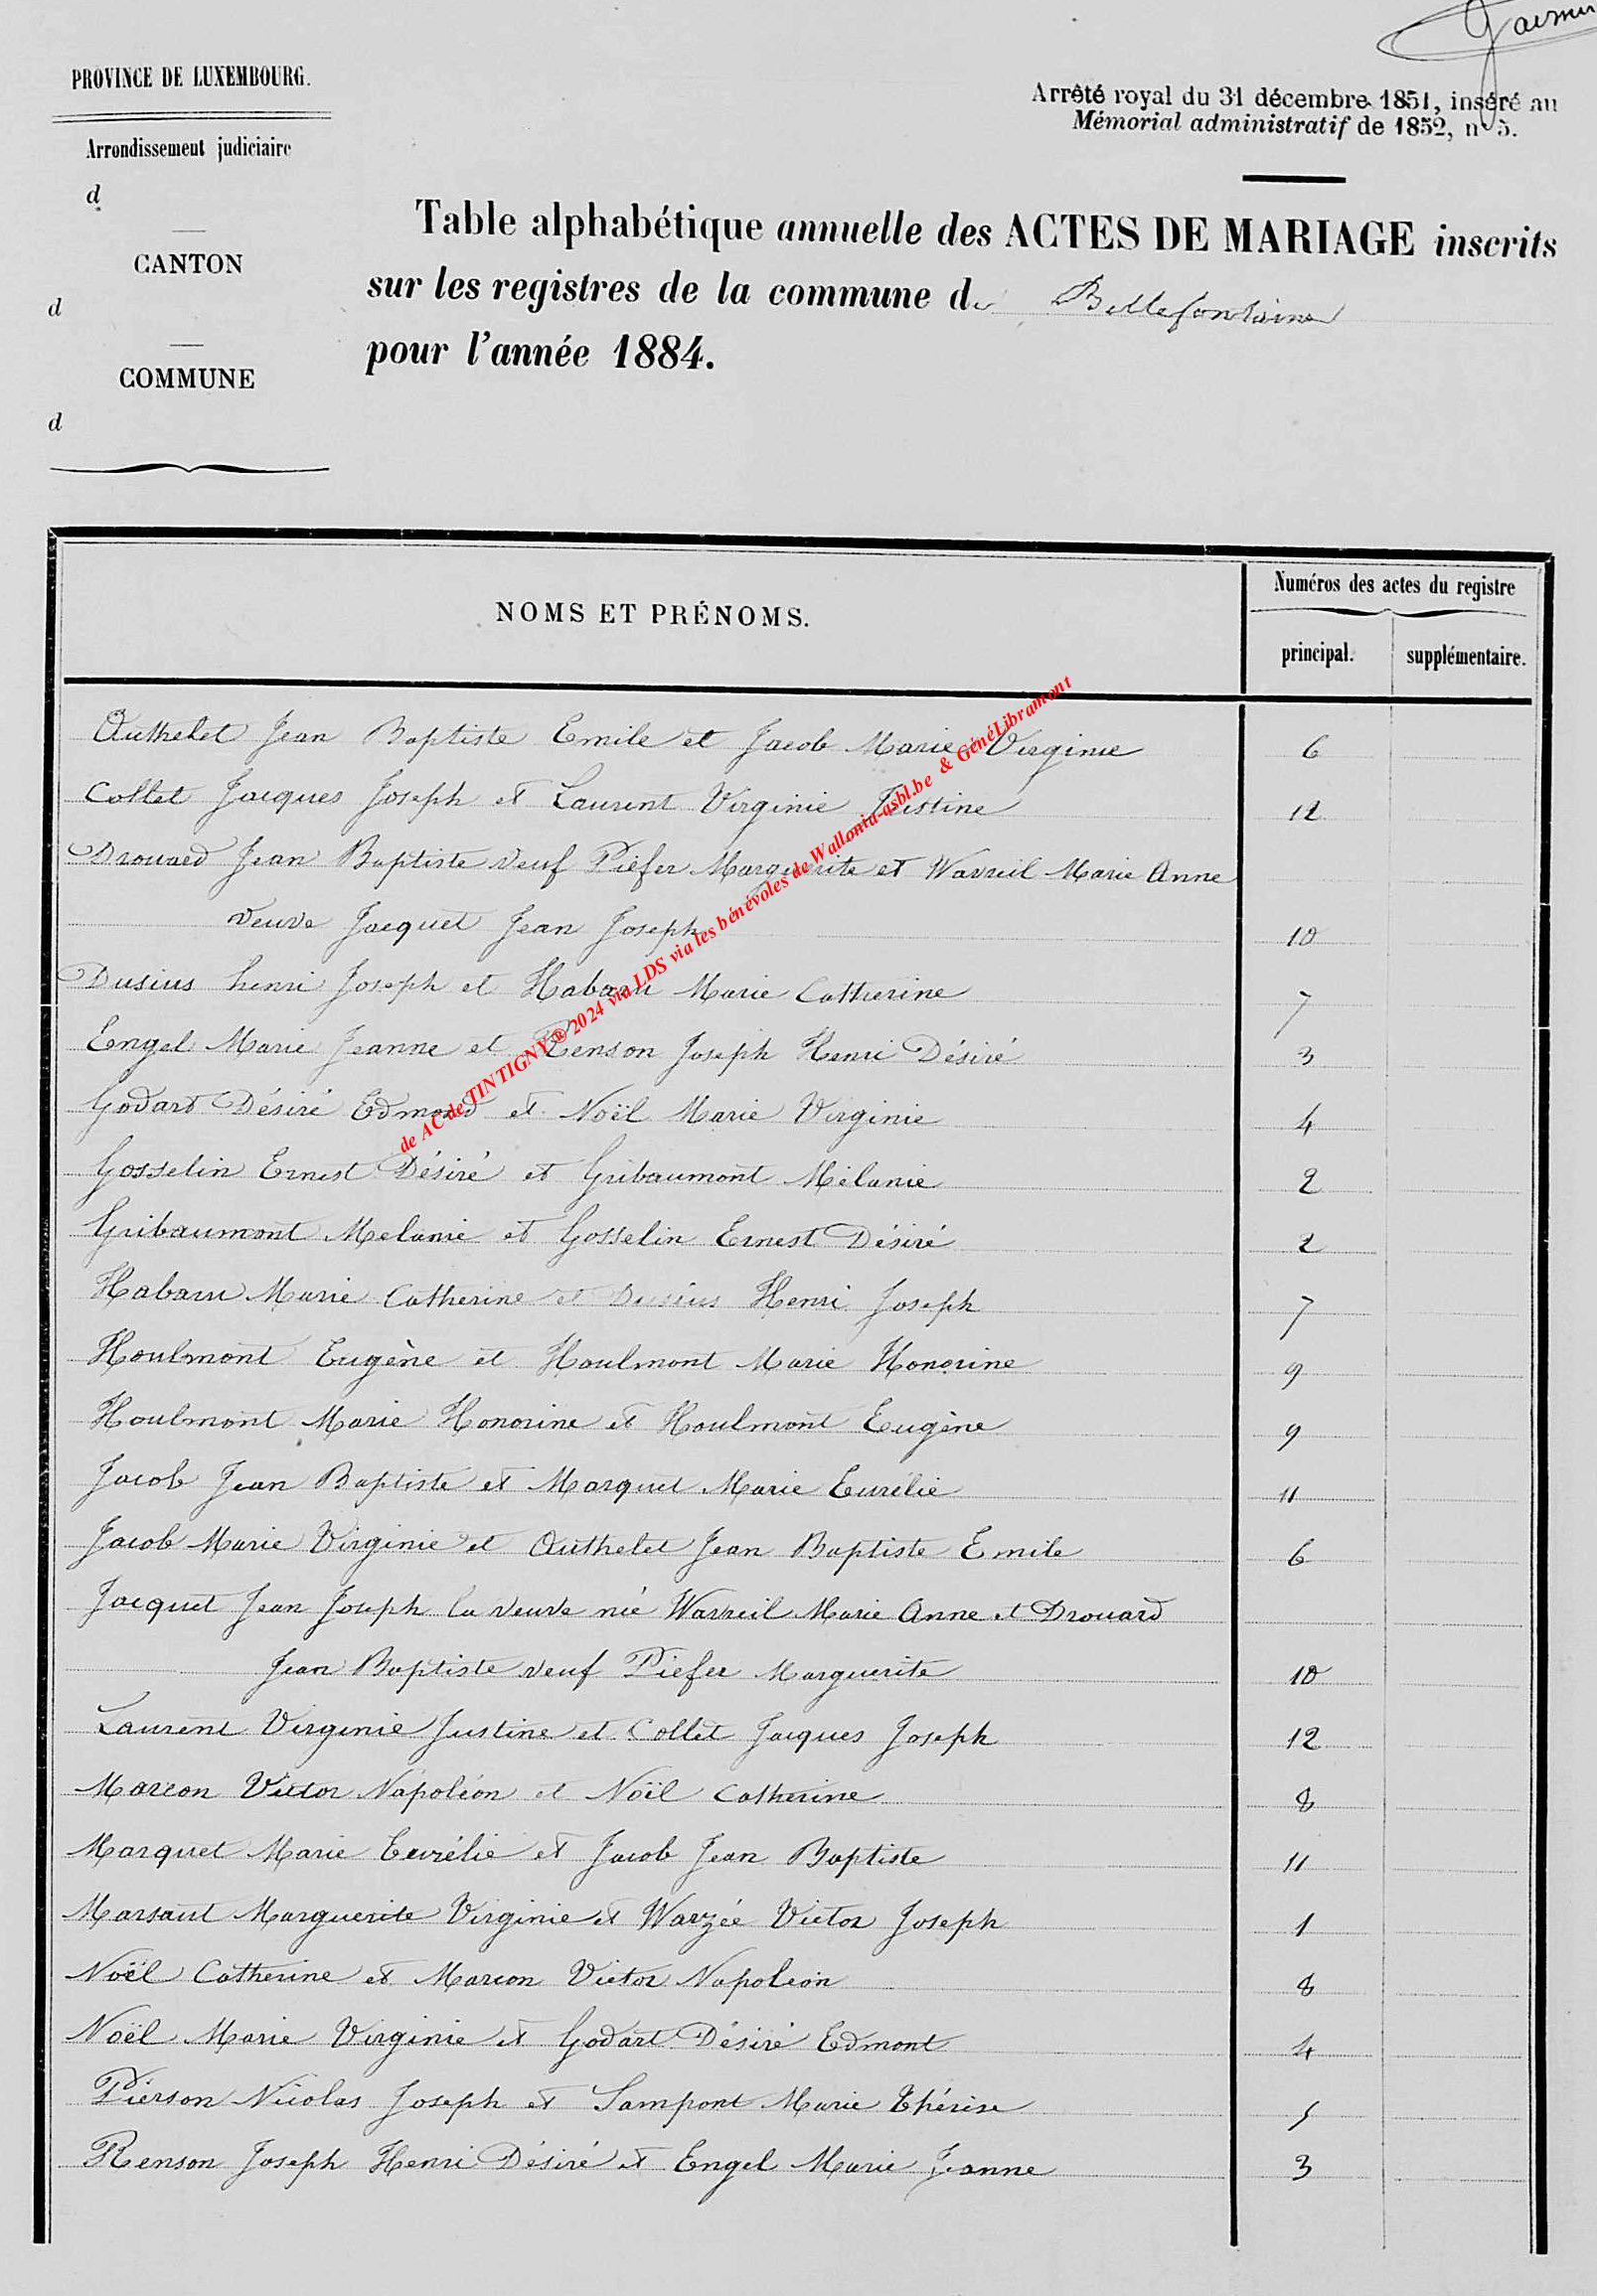 PROVINCE DE LUXEMBOURG.
Arrondissement judiciaire
d
CANTON
d
COMMUNE
d
Arrêté royal du 31 décembre 1851, inséré au
Mémorial administratif de 1852, n° 5.
Table alphabétique annuelle des ACTES DE MARIAGE inscrits
sur les registres de la commune de Bellefontaine
pour l'année 1884.
NOMS ET PRÉNOMS.
Numéros des actes du registre
principal. supplémentaire.
Authelet Jean Baptiste Emile et Jacob Marie Virginie 6
Collet Jacques Joseph et Laurent Virginie Justine 12
Drouard Jean Baptiste veuf Piefer Marguerite et Wavreil Marie Anne
veuve Jacquet Jean Joseph 10
Dusius henri Joseph et Habaru Marie Catherine 7
Engel Marie Jeanne et Renson Joseph Henri Désiré 3
Godart Désiré Edmond et Noël Marie Virginie 4
Gosselin Ernest Désiré et Gribaumont Mélanie 2
Gribaumont Melanie et Gosselin Ernest Désiré 2
Habaru Marie Catherine et Dusius Henri Joseph 7
Houlmont Eugène et Houlmont Marie Honorine 9
Houlmont Marie Honorine et Houlmont Eugène 9
Jacob Jean Baptiste et Marquet Marie Eurélie 11
Jacob Marie Virginie et Authelet Jean Baptiste Emile 6
Jacquet Jean Joseph la veuve née Wavreil Marie Anne et Drouard
Jean Baptiste veuf Piefer Marguerite 10
Laurent Virginie Justine et Collet Jacques Joseph 12
Marcon Victor Napoléon et Noël Catherine 8
Marquet Marie Eurélie et Jacob Jean Baptiste 11
Marsaut Marguerite Virginie et Warzée Victor Joseph 1
Noël Catherine et Marcon Victor Napoléon 8
Noël Marie Virginie et Godart Désiré Edmont 4
Pierson Nicolas Joseph et Sampont Marie Thérèse 5
Renson Joseph Henri Désiré et Engel Marie Jeanne 3
de AC de TINTIGNY @ 2024 via LDS via les bénévoles de Wallonia-asbl.be & GénéLibramont